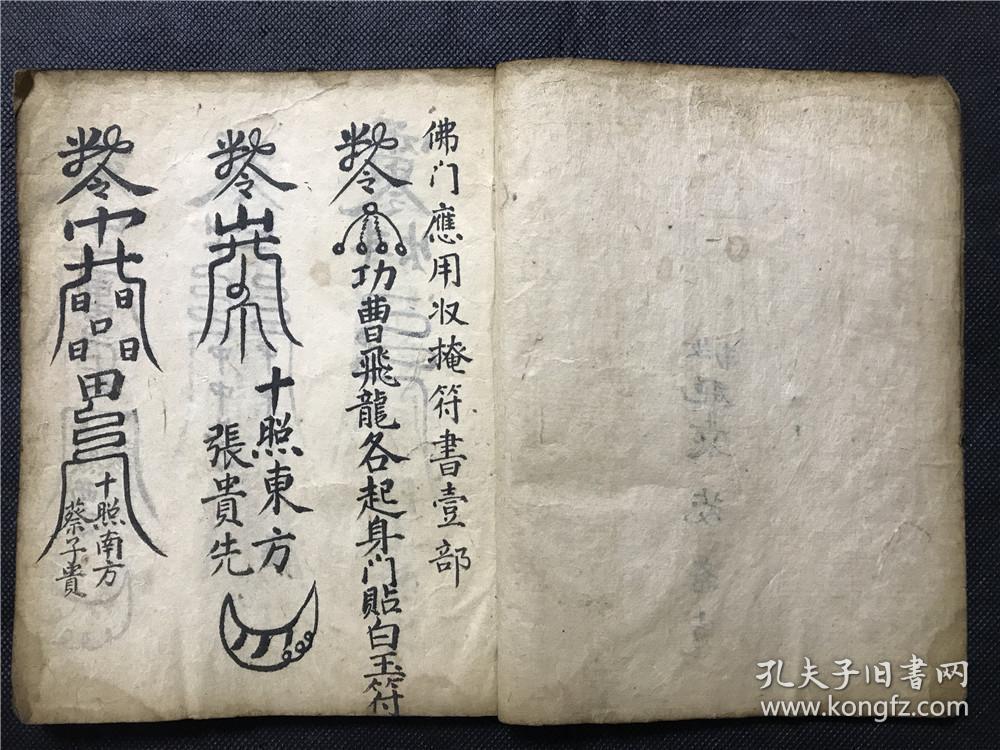 佛门應用收掩符書壹部
令
功曹飛龍各起身门貼白玉符
令
十照東方
張貴先
令
中
日日
口
日日
田
弓
十照南方
蔡子貴
孔夫子旧书网
www.kongfz.com